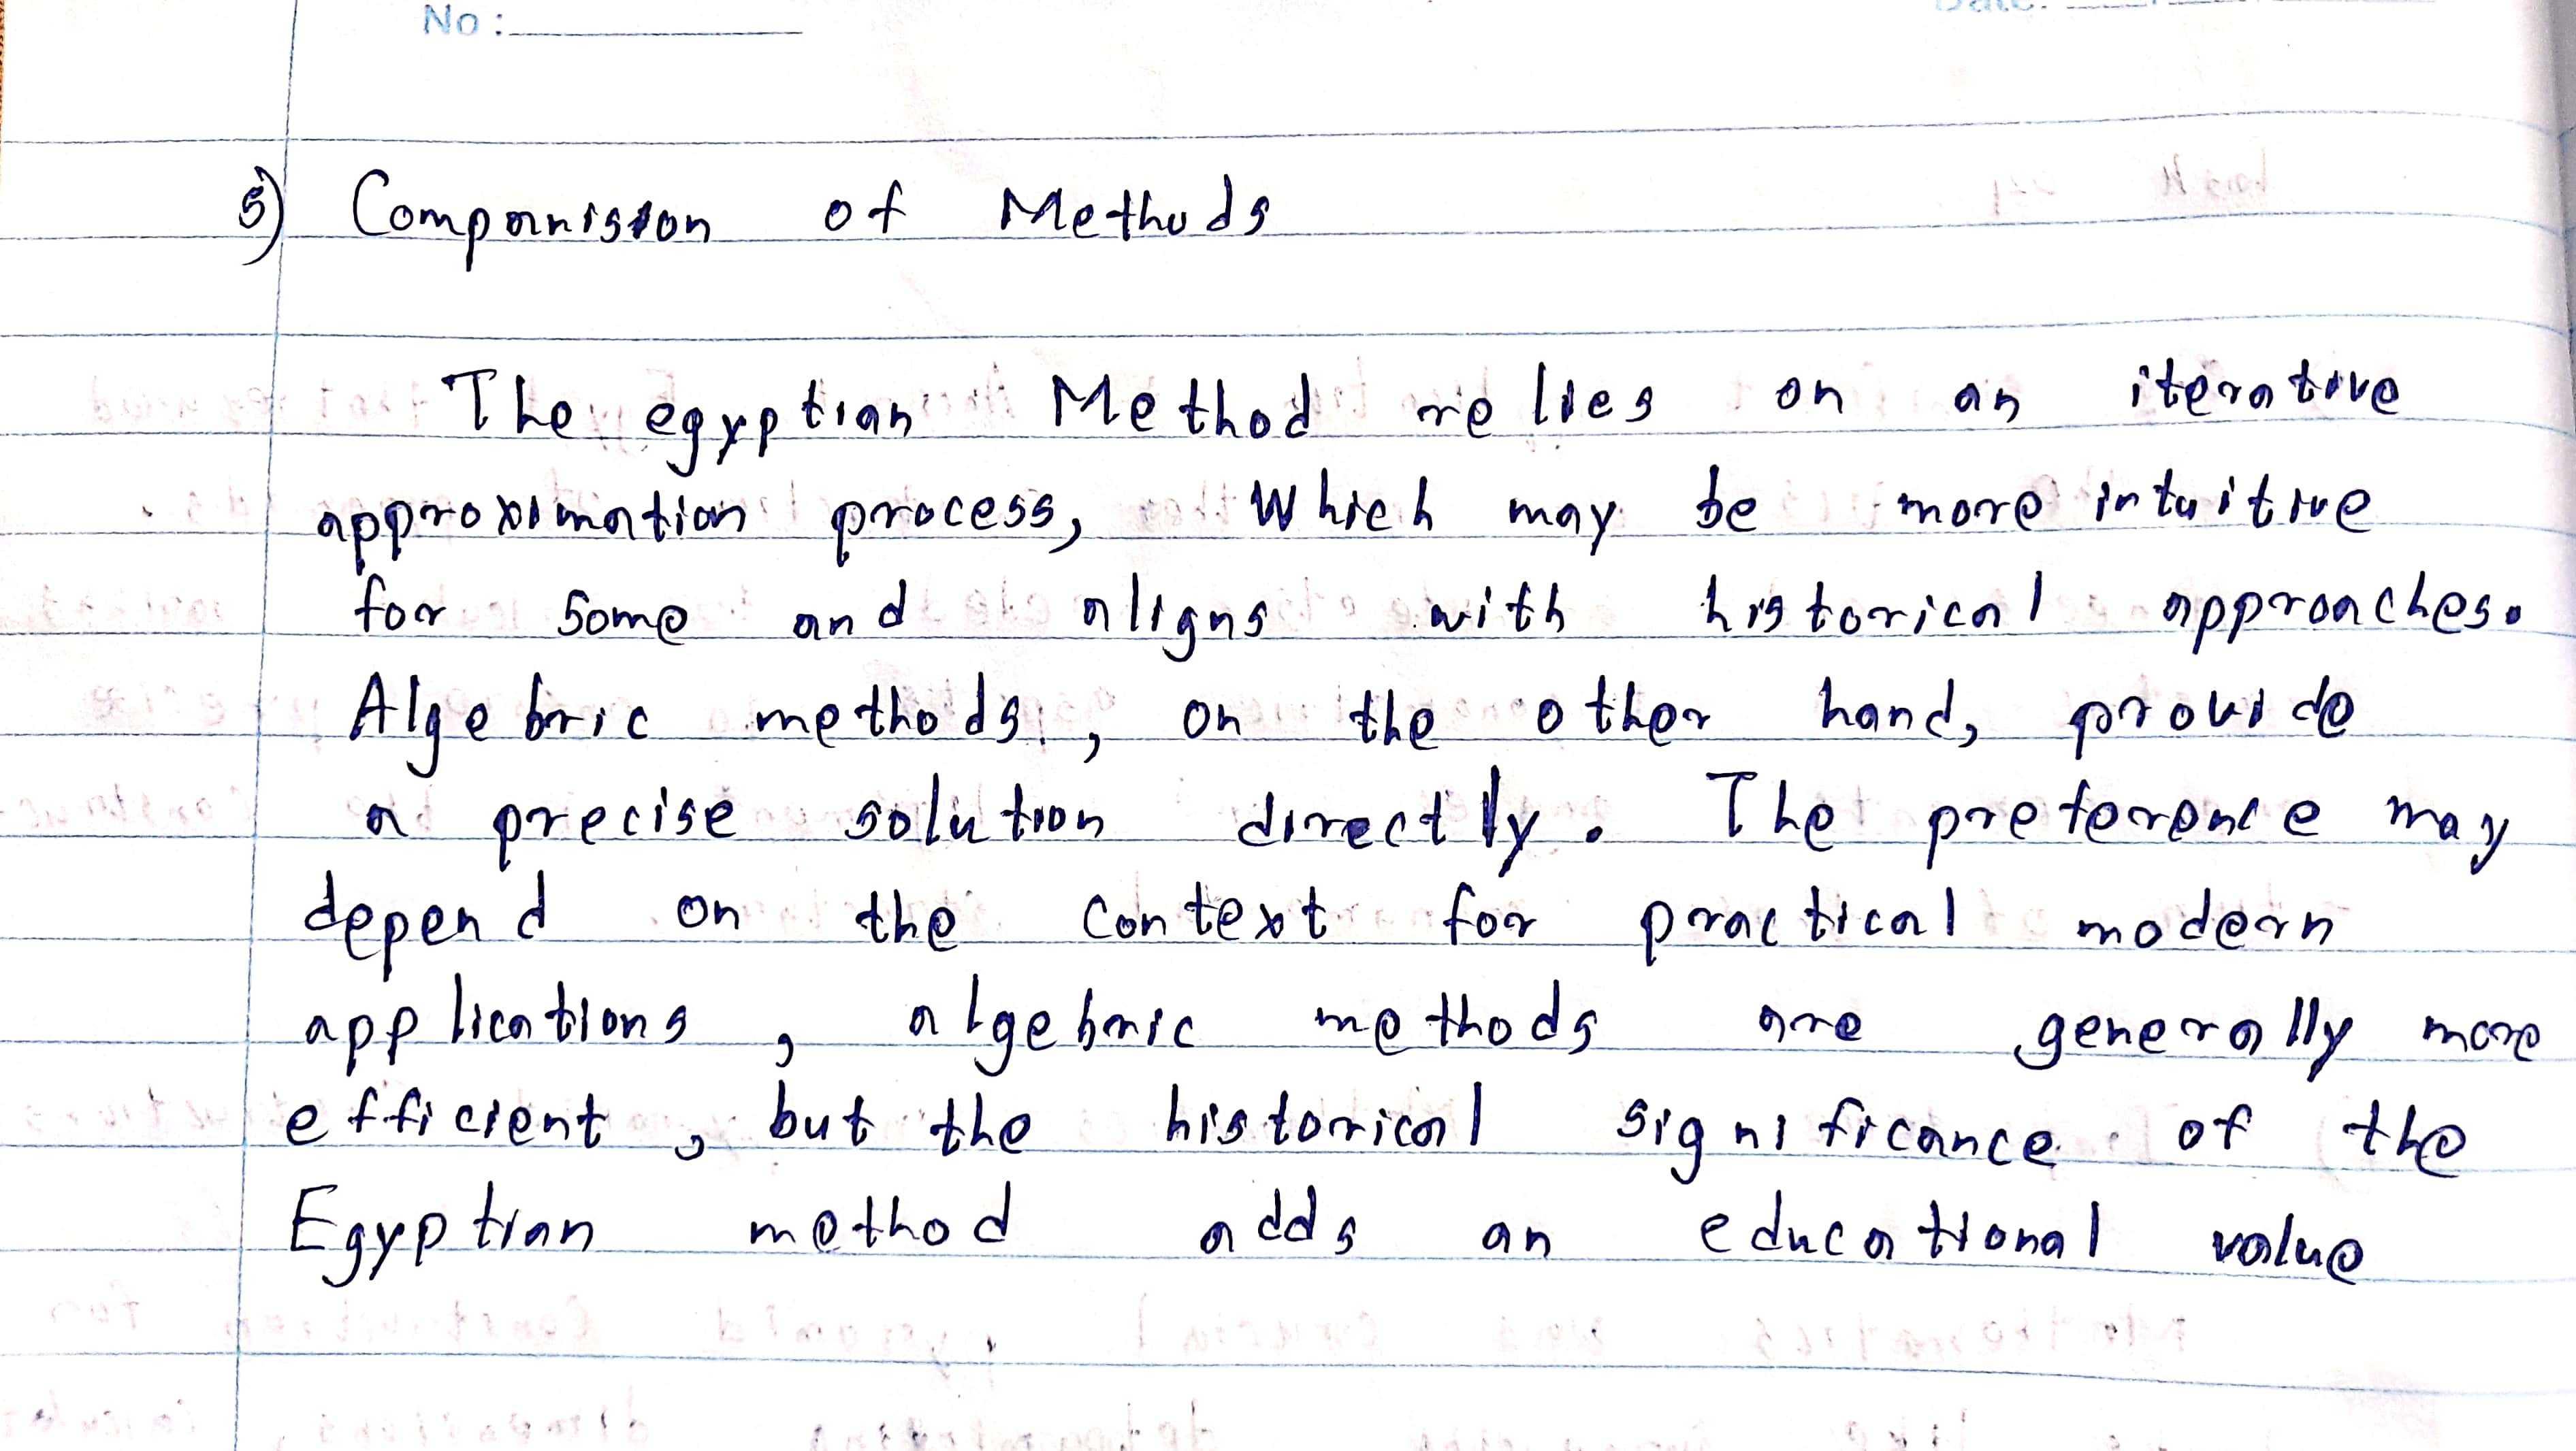 No :
Date:
5) Comparnission of Methods
The egyptian Method relies on an iterative
approximation process, Which may be more intuitive
for some and aligns with historical approaches.
Algebric methods, on the other hand, provide
a precise solution directly. The preference may
depend on the context for practical modern
applications, algebric methods are generally more
efficient, but the historical significance of the
Egyptian method adds an educational value